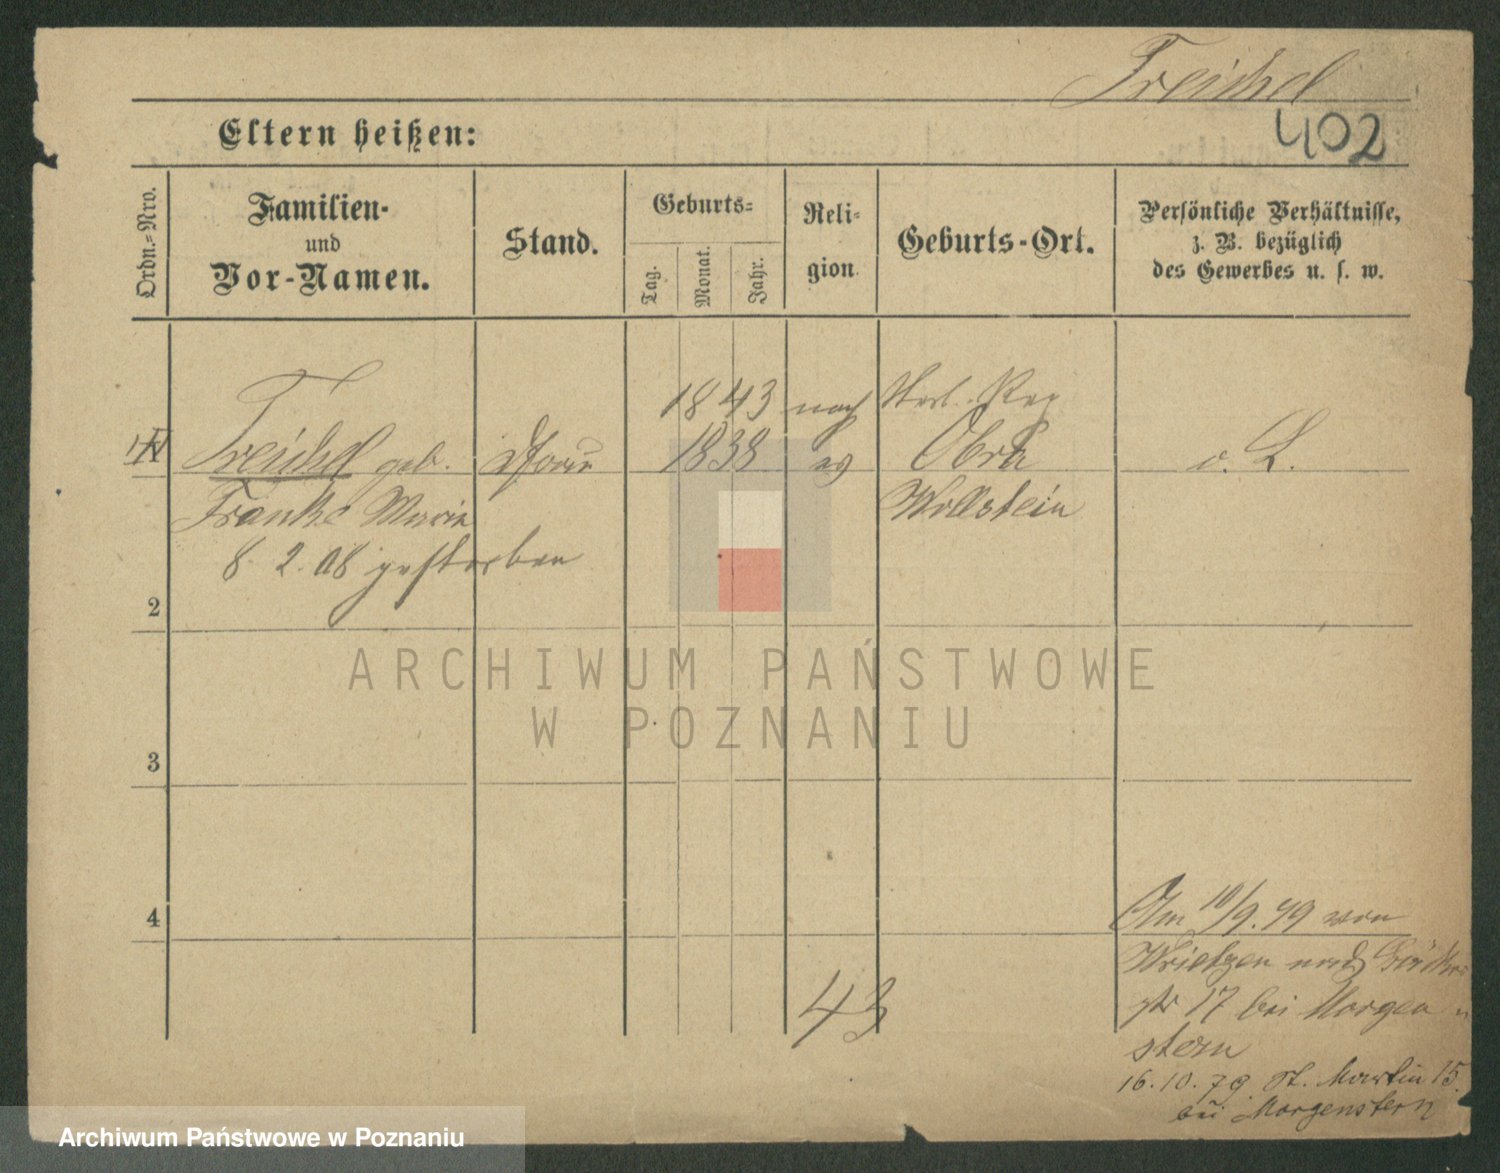 Treichel
402
Eltern heißen:
Ordn.-Nro.
Familien-
und
Vor-Namen.
Stand.
Geburts-
Tag.
Monat.
Jahr.
Reli-
gion
Geburts-Ort.
Persönliche Verhältnisse,
z. B. bezüglich
des Gewerbes u. s. w.
1843 nach
Treichel geb. 1838 ev Obra
Franke Marie Wollstein
8. 2. 08 gestorben
2
3
4
43
Am 10/9. 79 von
Wrietzen nach
str 17 bei Morgen
stern
16. 10. 79 St. Martin 15.
bei Morgenstern
ARCHIWUM PAŃSTWOWE
W POZNANIU
Archiwum Państwowe w Poznaniu